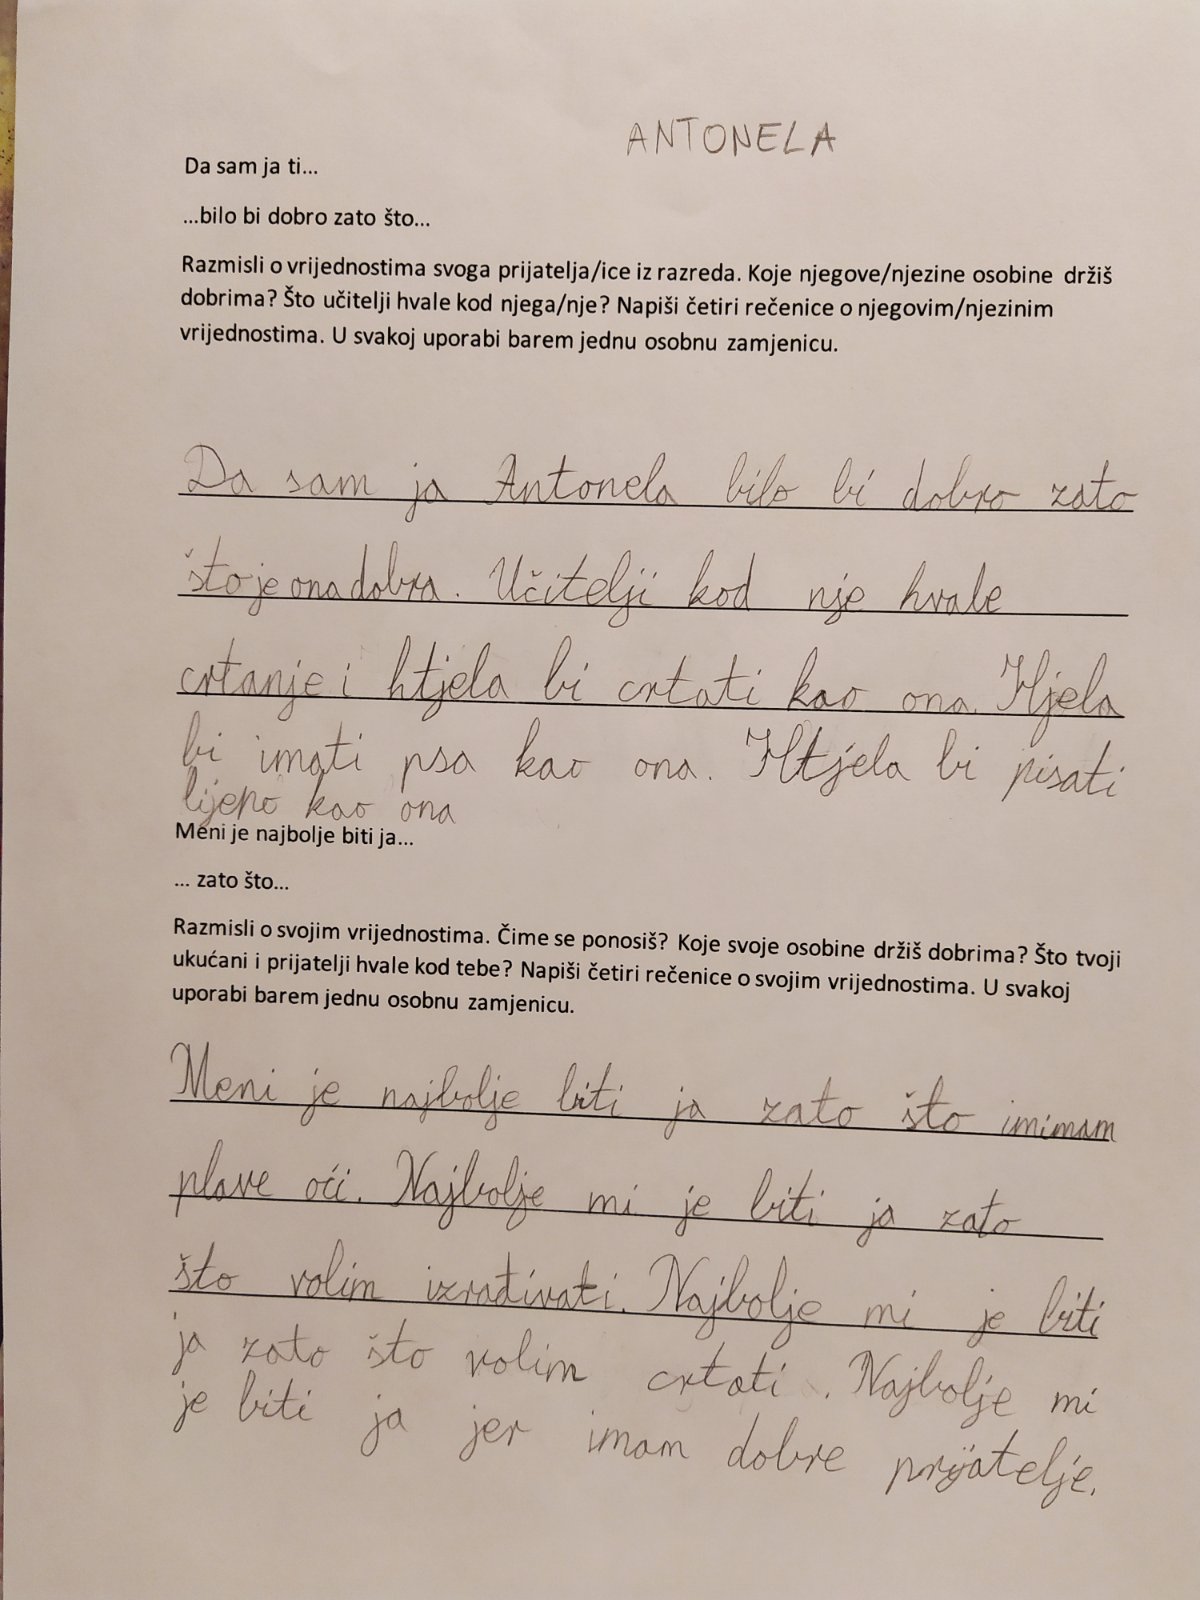 ANTONELA
Da sam ja ti...
...bilo bi dobro zato što...
Razmisli o vrijednostima svoga prijatelja/ice iz razreda. Koje njegove/njezine osobine držiš
dobrima? Što učitelji hvale kod njega/nje? Napiši četiri rečenice o njegovim/njezinim
vrijednostima. U svakoj uporabi barem jednu osobnu zamjenicu.
Da sam ja Antonela bilo bi dobro zato
što je ona dobra. Učitelji kod nje hvale
crtanje i htjela bi crtati kao ona. Htjela
bi imati psa kao ona. Htjela bi pisati
lijepo kao ona
Meni je najbolje biti ja...
... zato što...
Razmisli o svojim vrijednostima. Čime se ponosiš? Koje svoje osobine držiš dobrima? Što tvoji
ukućani i prijatelji hvale kod tebe? Napiši četiri rečenice o svojim vrijednostima. U svakoj
uporabi barem jednu osobnu zamjenicu.
Meni je najbolje biti ja zato što imimam
plave oći. Najbolje mi je biti ja zato
što volim izrađivati. Najbolje mi je biti
ja zato što volim crtati. Najbolje mi
je biti ja jer imam dobre prijatelje.